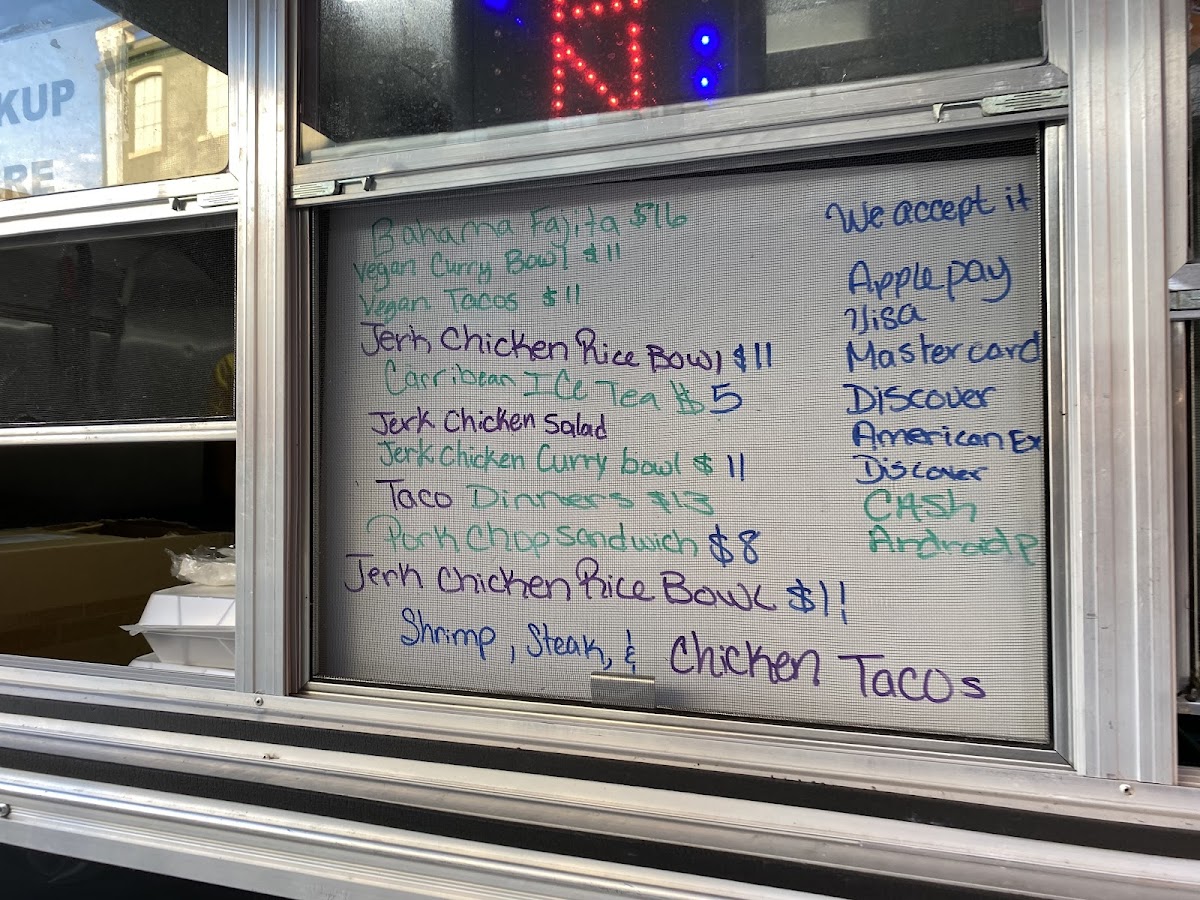 KUP
RE
N
Bahama Fajita $16
Vegan Curry Bowl $11
Vegan Tacos $11
Jerk Chicken Rice Bowl $11
Carribean ICe Tea $5
Jerk Chicken Salad
Jerk Chicken Curry bowl $11
Taco Dinners $13
Pork Chop Sandwich $8
Jerk Chicken Rice Bowl $11
Shrimp, Steak, & Chicken Tacos
We accept it
Apple pay
Visa
Mastercard
Discover
American Ex
Discover
CASh
Android P